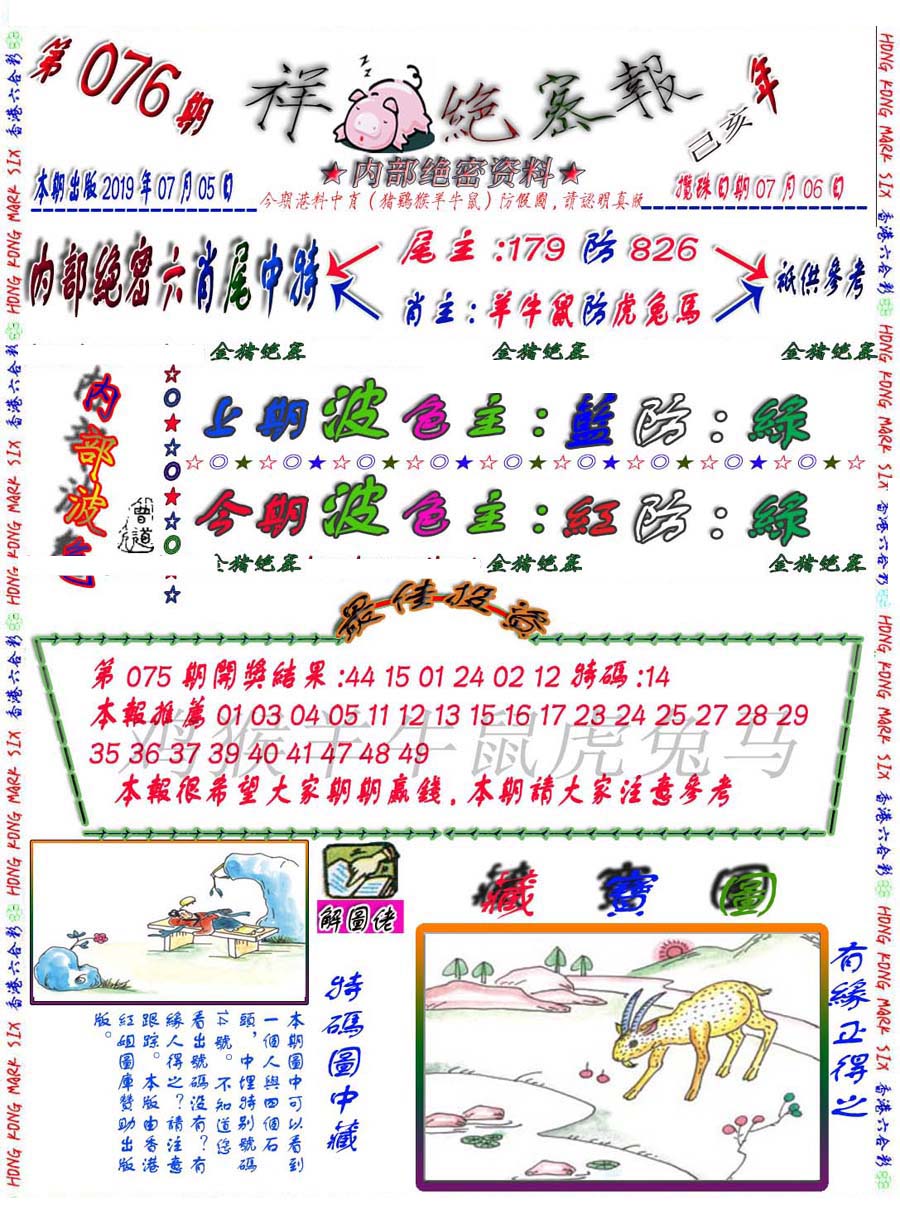 第076期
祥 絕密報
己亥年
★内部绝密资料★
本期出版2019年07月05日
今期港料中肖(猪鷄猴羊牛鼠)防假圖,請認明真版
攪珠日期07月06日
内部絶密六肖尾中特
尾主:179防826
肖主:羊牛鼠防虎兔馬
衹供參考
金猪绝密
金猪绝密
金猪绝密
内部波色
曾道
上期波色主:藍防:綠
今期波色主:紅防:綠
金猪绝密
金猪绝密
金猪绝密
最佳投
第075期開獎結果:44 15 01 24 02 12 特碼:14
本報推薦 01 03 04 05 11 12 13 15 16 17 23 24 25 27 28 29
35 36 37 39 40 41 47 48 49
鸡猴羊牛鼠虎兔马
本報很希望大家期期贏錢,本期請大家注意參考
解圖佬
藏寶圖
特碼圖中藏
本期圖中可以看到
一個人與四個石
頭,中埋特别號碼
14號。不知道您
看出號碼没有?有
緣人得之?請注意
跟踪。本版由香港
紅姐圖庫赞助出版
版。
有緣正得之
HONG KONG MARK SIX 香港六合彩 HONG KONG MARK SIX 香港六合彩 HONG KONG MARK SIX 香港六合彩 HONG KONG MARK SIX 香港六合彩
HONG KONG MARK SIX 香港六合彩 HONG KONG MARK SIX 香港六合彩 HONG KONG MARK SIX 香港六合彩 HONG KONG MARK SIX 香港六合彩